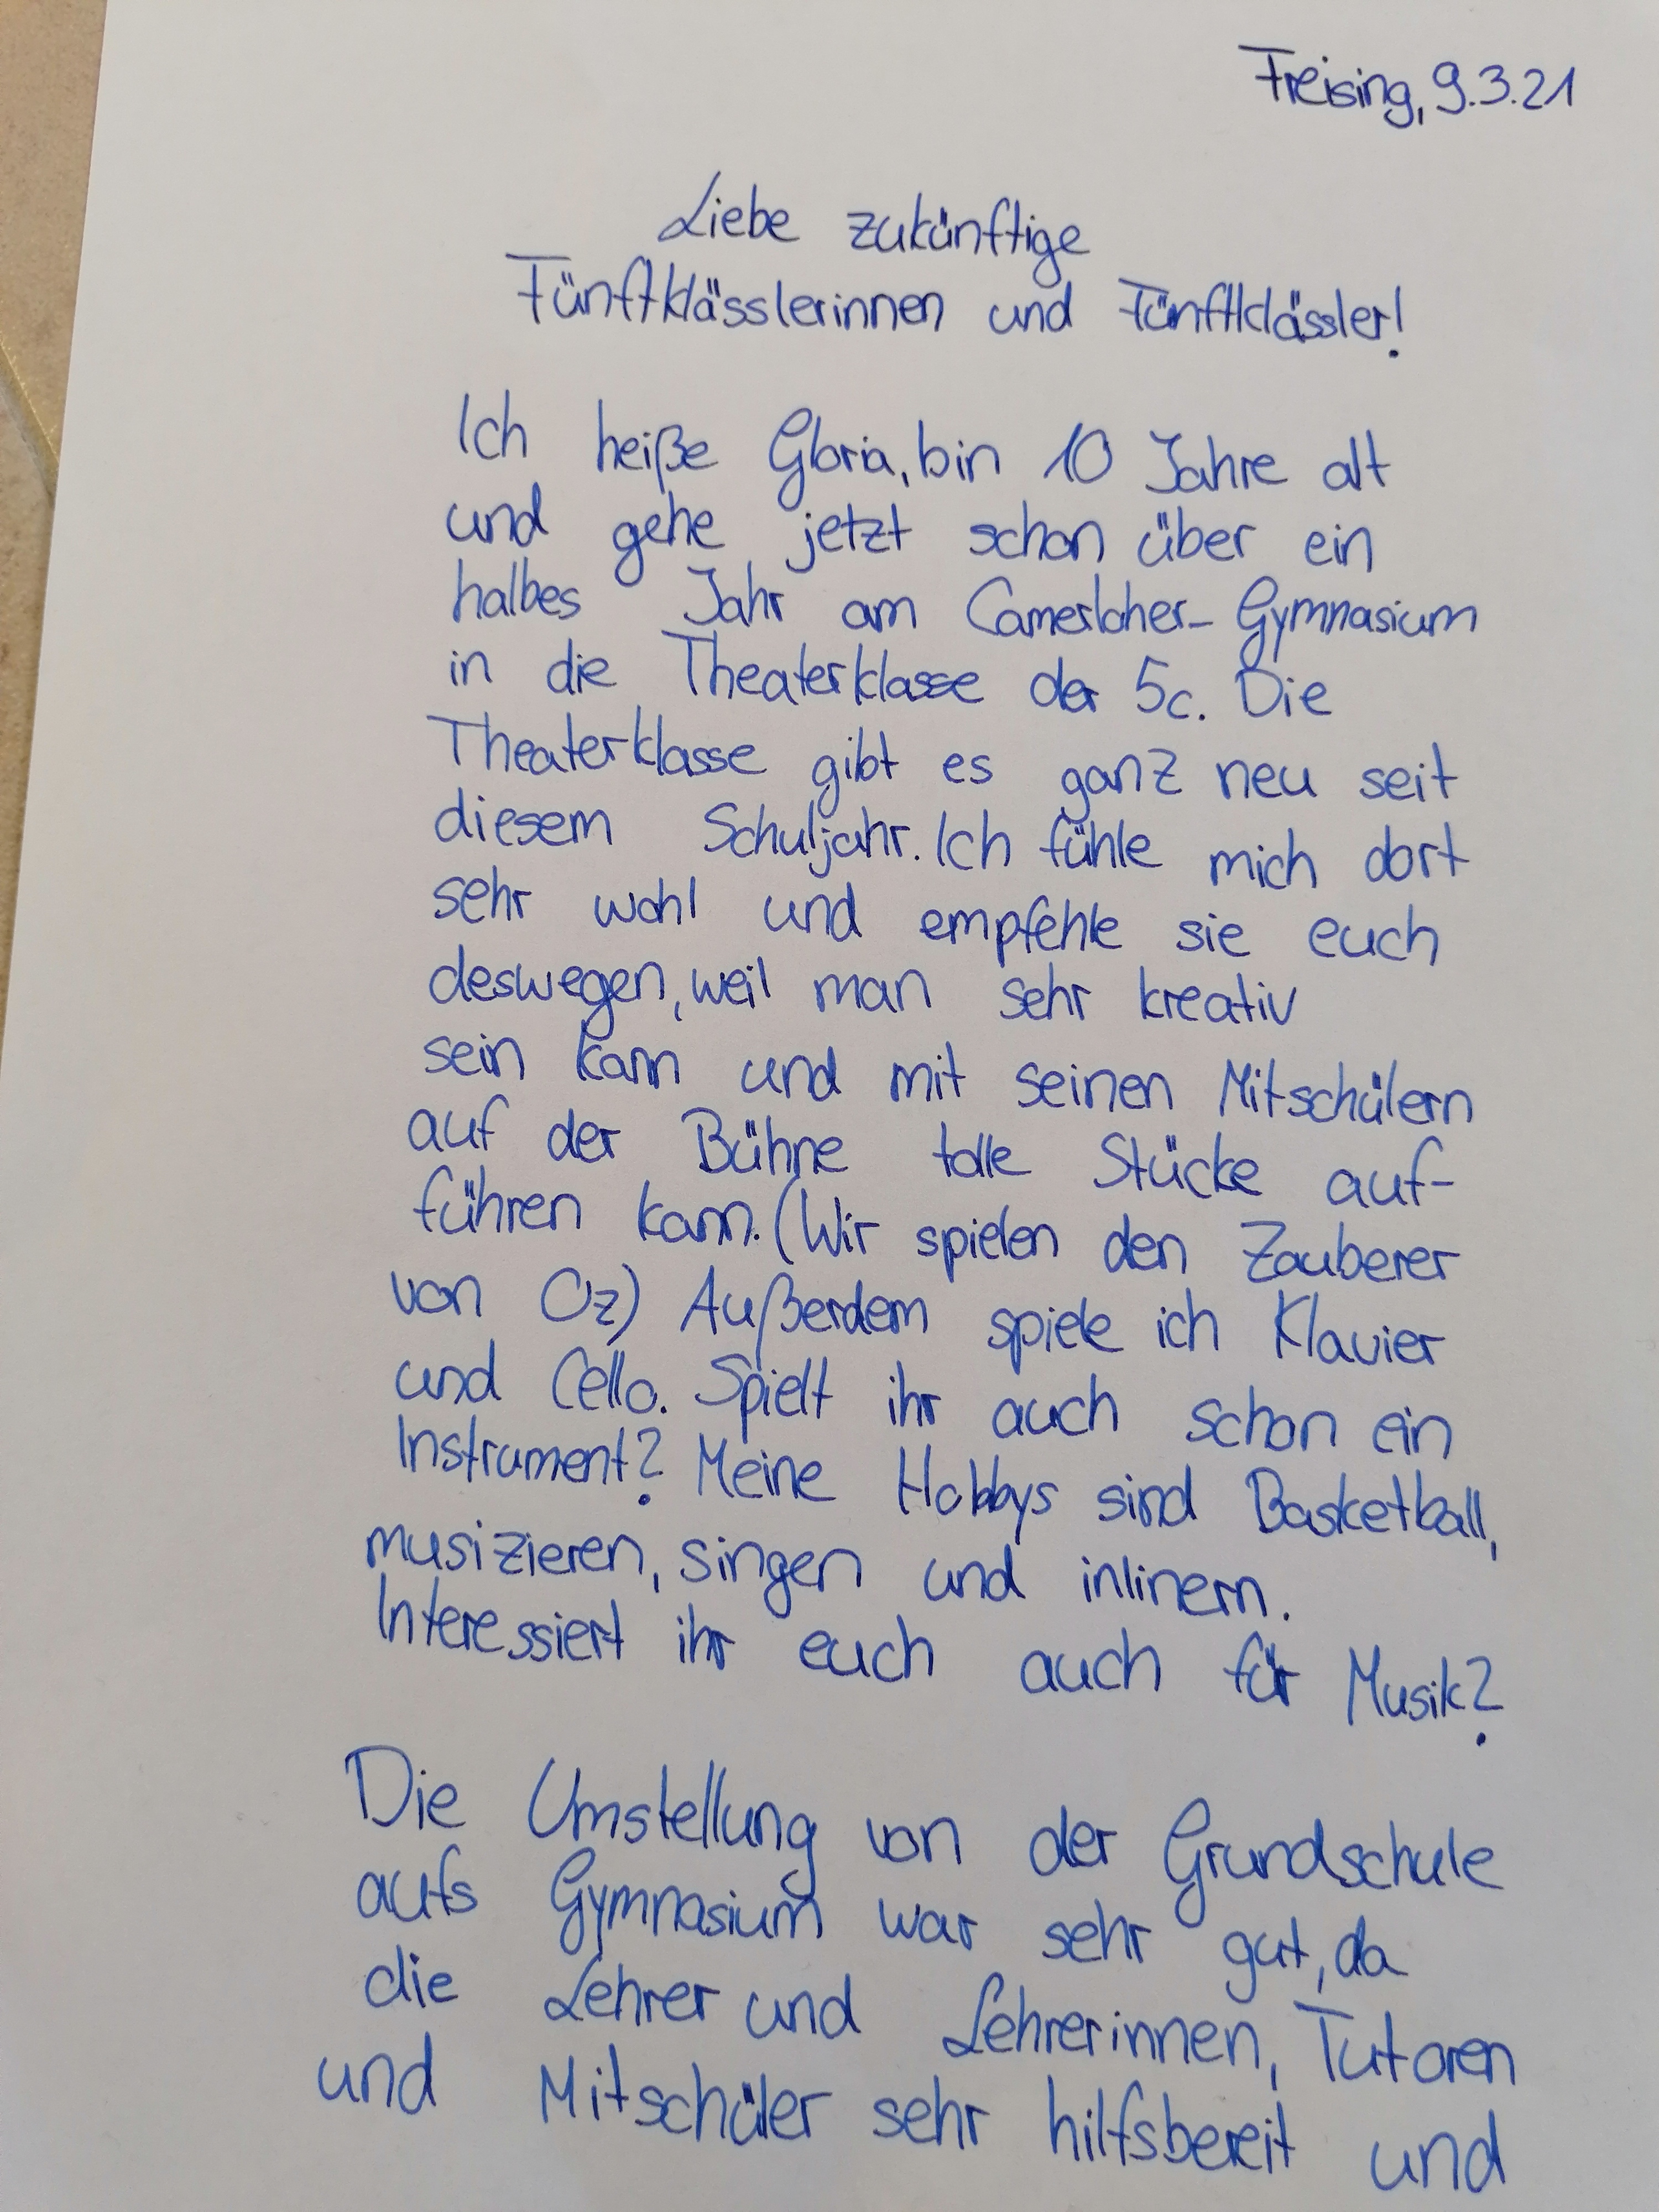 Freising, 9.3.21
Liebe zukünftige
Fünftklässlerinnen und Fünftklässler!
Ich heiße Gloria, bin 10 Jahre alt
und gehe jetzt schon über ein
halbes Jahr am Camerloher-Gymnasium
in die Theaterklasse der 5c. Die
Theaterklasse gibt es ganz neu seit
diesem Schuljahr. Ich fühle mich dort
sehr wohl und empfehle sie euch
deswegen, weil man sehr kreativ
sein kann und mit seinen Mitschülern
auf der Bühne tolle Stücke auf-
führen kann. (Wir spielen den Zauberer
von Oz) Außerdem spiele ich Klavier
und Cello. Spielt ihr auch schon ein
Instrument? Meine Hobbys sind Basketball,
musizieren, singen und inlinern.
Interessiert ihr euch auch für Musik?
Die Umstellung von der Grundschule
aufs Gymnasium war sehr gut, da
die Lehrer und Lehrerinnen, Tutoren
und Mitschüler sehr hilfsbereit und